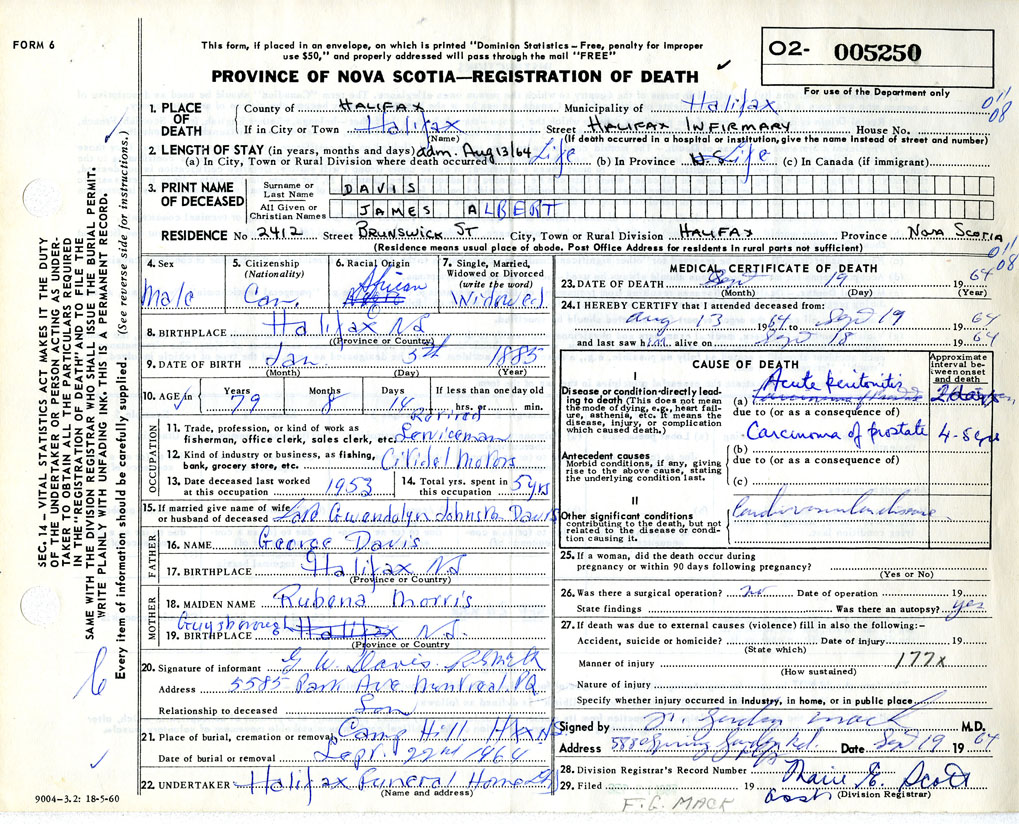 FORM 6
This form, if placed in an envelope, on which is printed "Dominion Statistics – Free, penalty for improper
use $50," and properly addressed will pass through the mail "FREE"
PROVINCE OF NOVA SCOTIA—REGISTRATION OF DEATH
O2- 005250
For use of the Department only
011
08
1. PLACE OF DEATH
County of HALIFAX Municipality of Halifax
If in City or Town Halifax Street HALIFAX INFIRMARY House No.
(Name) (If death occurred in a hospital or institution, give the name instead of street and number)
2. LENGTH OF STAY (in years, months and days) adm. Aug 13/64
(a) In City, Town or Rural Division where death occurred Life (b) In Province Life (c) In Canada (if immigrant)
3. PRINT NAME OF DECEASED
Surname or Last Name DAVIS
All Given or Christian Names JAMES ALBERT
RESIDENCE No 2412 Street BRUNSWICK ST City, Town or Rural Division HALIFAX Province NOVA SCOTIA
(Residence means usual place of abode. Post Office Address for residents in rural parts not sufficient)
011
08
4. Sex Male
5. Citizenship (Nationality) Can.
6. Racial Origin African
7. Single, Married, Widowed or Divorced (write the word) Widowed
8. BIRTHPLACE Halifax NS
(Province or Country)
9. DATE OF BIRTH Jan 5th 1885
(Month) (Day) (Year)
10. AGE in Years 79 Months 8 Days 14 If less than one day old hrs. or min.
OCCUPATION
11. Trade, profession, or kind of work as fisherman, office clerk, sales clerk, etc. Serviceman
12. Kind of industry or business, as fishing, bank, grocery store, etc. Citidel Motors
13. Date deceased last worked at this occupation 1953
14. Total yrs. spent in this occupation 5 yrs
15. If married give name of wife or husband of deceased Gwendolyn Johnston Davis
FATHER
16. NAME George Davis
17. BIRTHPLACE Halifax NS
(Province or Country)
MOTHER
18. MAIDEN NAME Rubena Morris
19. BIRTHPLACE Guysborough Halifax NS.
(Province or Country)
20. Signature of informant G W Davis
Address 5585 Park Ave Montreal PQ
Relationship to deceased Son
21. Place of burial, cremation or removal Camp Hill
Date of burial or removal Sept. 22nd 1964
22. UNDERTAKER Halifax Funeral Home
(Name and address)
9004-3.2: 18-5-60
MEDICAL CERTIFICATE OF DEATH
23. DATE OF DEATH Sept 19 1964
(Month) (Day) (Year)
24. I HEREBY CERTIFY that I attended deceased from:
Aug 13 1964 to Sept 19 1964
and last saw him alive on Sept 18 1964
CAUSE OF DEATH
Approximate interval between onset and death
I
Disease or condition directly leading to death (This does not mean the mode of dying, e.g., heart failure, asthenia, etc. It means the disease, injury, or complication which caused death.)
(a) Acute peritonitis 2 days
due to (or as a consequence of)
Carcinoma of prostate 4-5 yrs
Antecedent causes
Morbid conditions, if any, giving rise to the above cause, stating the underlying condition last.
(b)
due to (or as a consequence of)
(c)
II
Other significant conditions
contributing to the death, but not related to the disease or condition causing it.
Cardiovascular disease
25. If a woman, did the death occur during
pregnancy or within 90 days following pregnancy?
(Yes or No)
26. Was there a surgical operation? no Date of operation 19
State findings Was there an autopsy? yes
27. If death was due to external causes (violence) fill in also the following:-
Accident, suicide or homicide? Date of injury 19
(State which)
Manner of injury 177x
(How sustained)
Nature of injury
Specify whether injury occurred in Industry, in home, or in public place
Signed by F. Gordon Mack M.D.
Address 5880 Spring Garden Rd. Date Sept 19 1964
28. Division Registrar's Record Number
29. Filed 19 Marie E. Scott
(Division Registrar)
F. G. MACK
SEC. 14 – VITAL STATISTICS ACT MAKES IT THE DUTY
OF THE UNDERTAKER OR PERSON ACTING AS UNDERTAKER
TO OBTAIN ALL THE PARTICULARS REQUIRED
IN THE "REGISTRATION OF DEATH" AND TO FILE THE
SAME WITH THE DIVISION REGISTRAR WHO SHALL ISSUE THE BURIAL PERMIT.
WRITE PLAINLY WITH UNFADING INK. THIS IS A PERMANENT RECORD.
Every item of information should be carefully supplied. (See reverse side for instructions.)